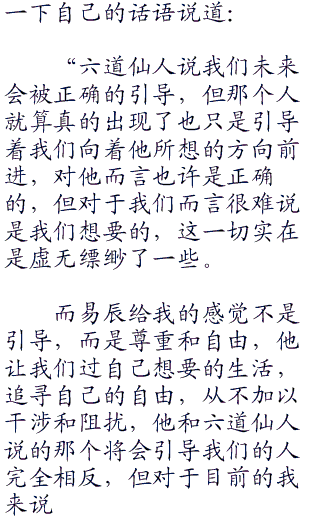 一下自己的话语说道：
“六道仙人说我们未来
会被正确的引导，但那个人
就算真的出现了也只是引导
着我们向着他所想的方向前
进，对他而言也许是正确
的，但对于我们而言很难说
是我们想要的，这一切实在
是虚无缥缈了一些。
而易辰给我的感觉不是
引导，而是尊重和自由，他
让我们过自己想要的生活，
追寻自己的自由，从不加以
干涉和阻扰，他和六道仙人
说的那个将会引导我们的人
完全相反，但对于目前的我
来说